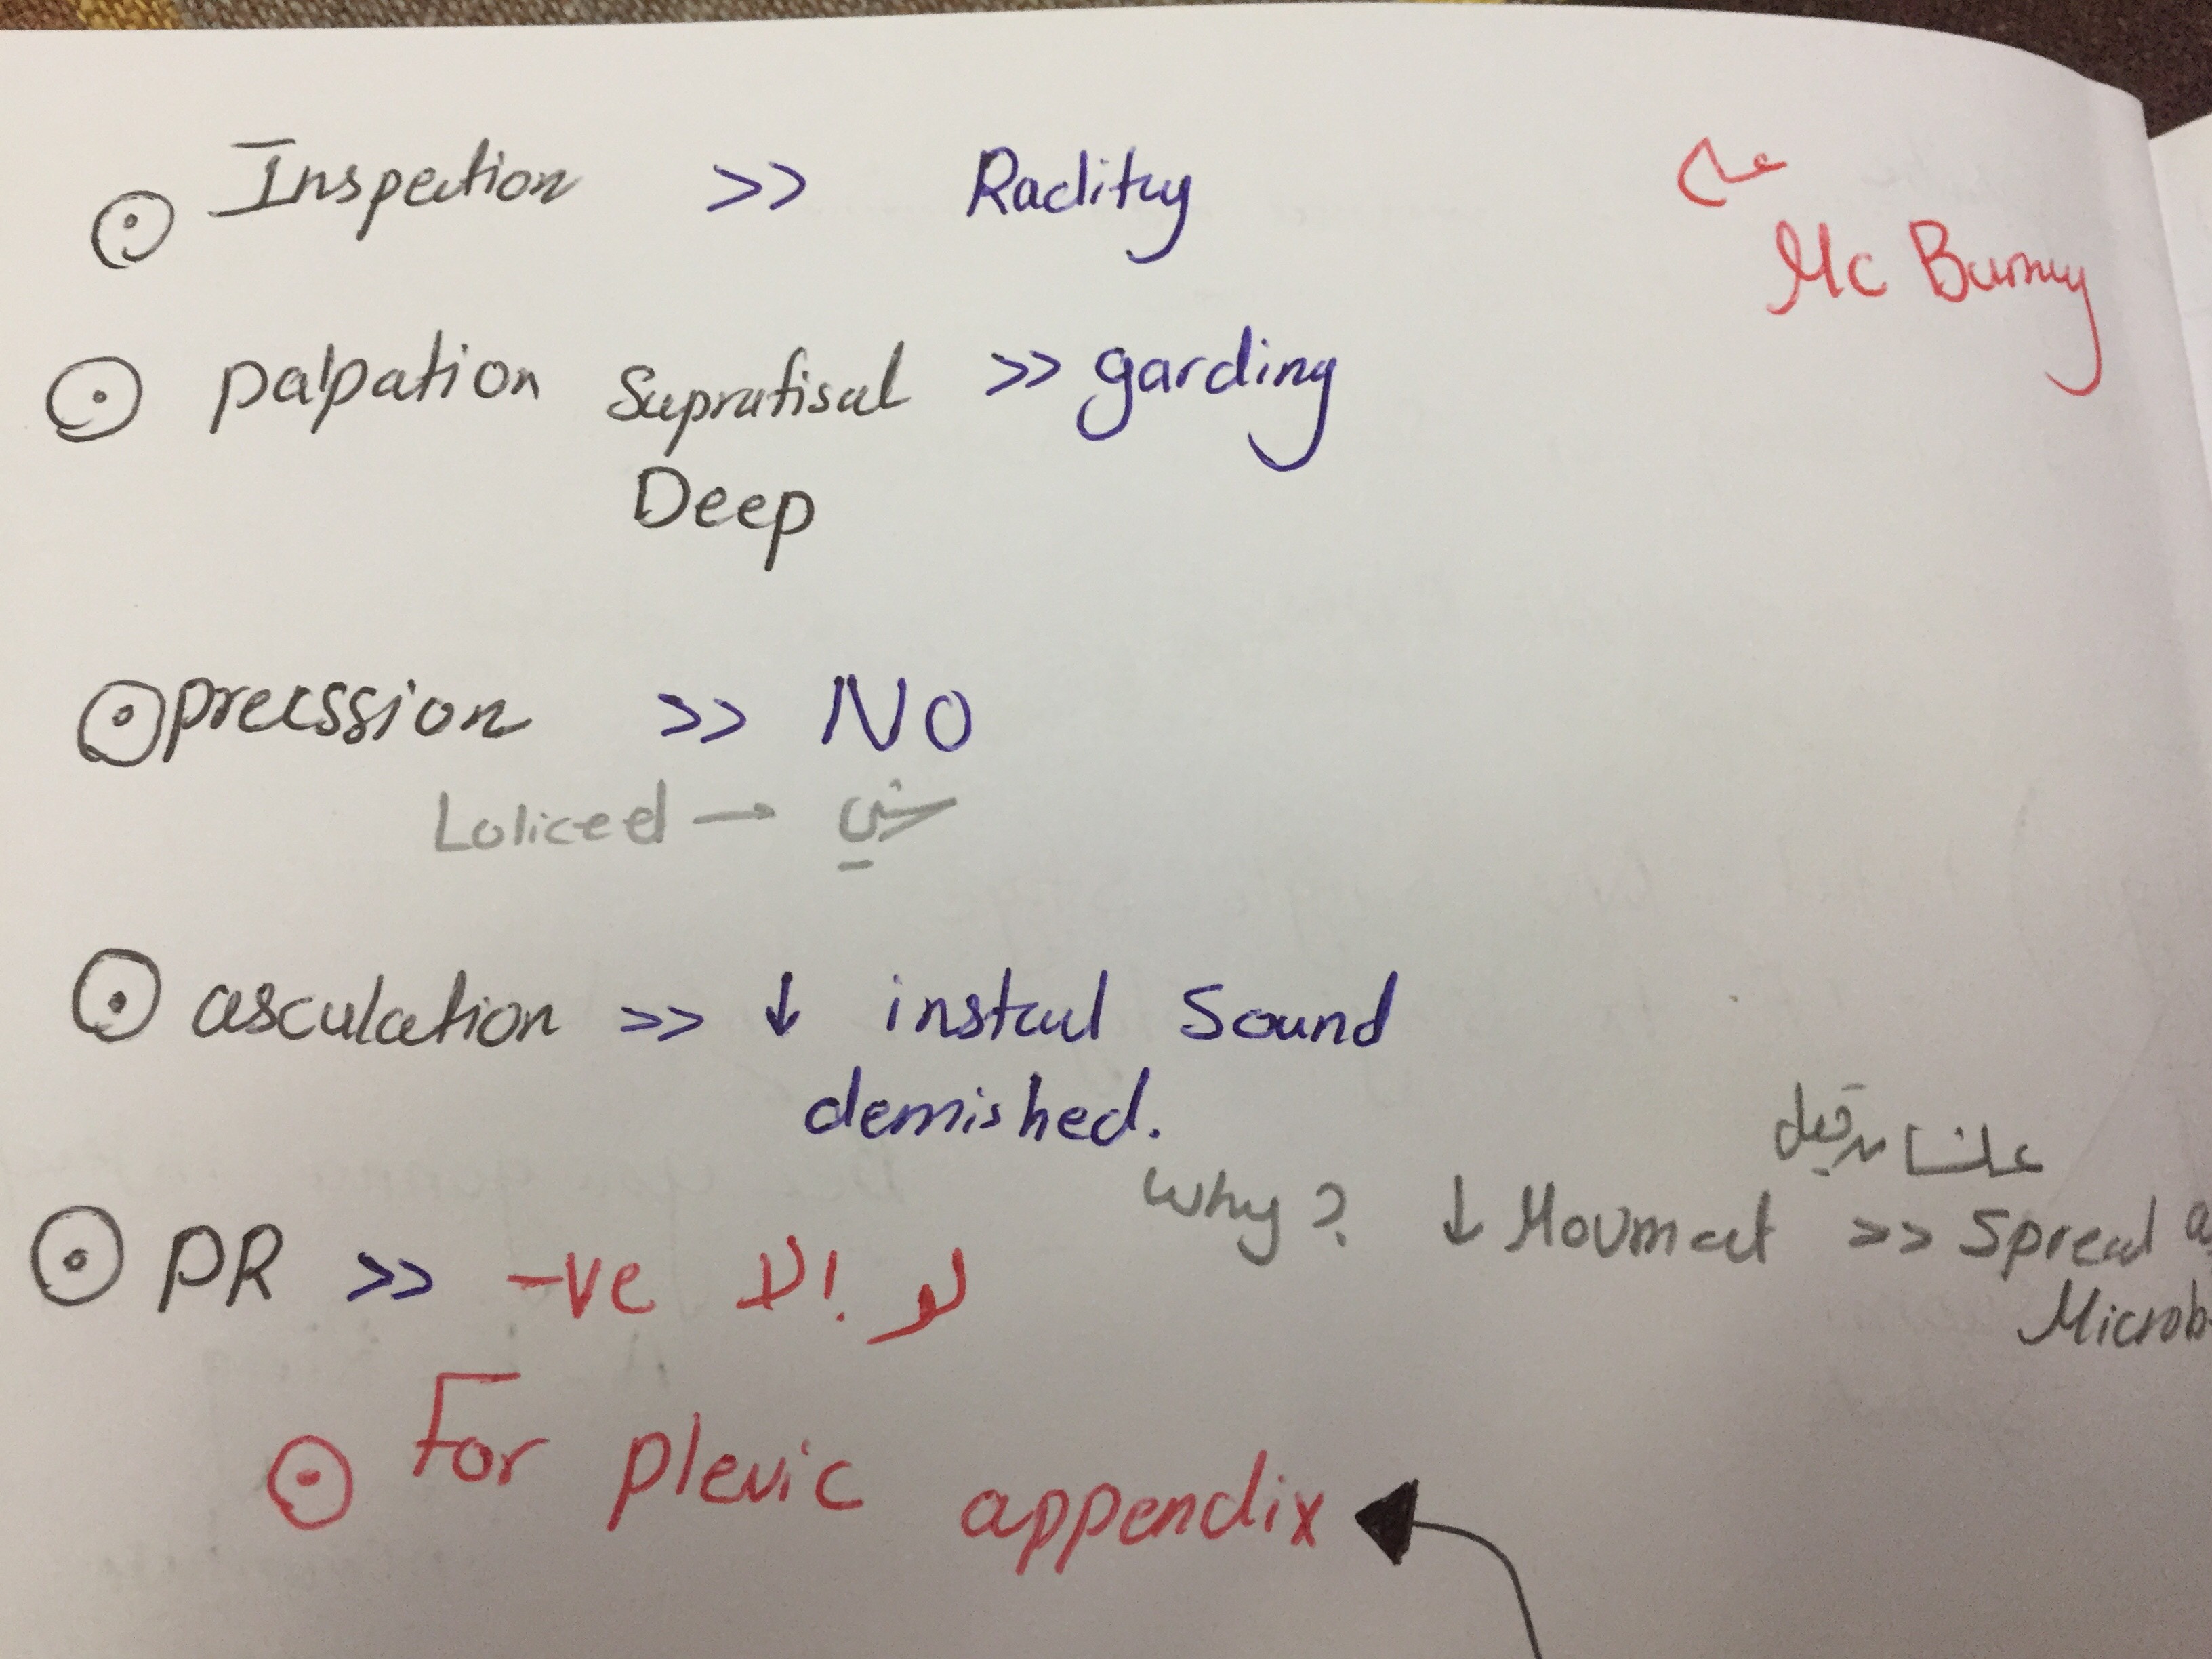 Inspection >> Radity
على
Mc Burny
palpation Suprafisal >> garding
Deep
precssion >> NO
Loliceed →
asculation >> ↓ instaul Sound
demished.
علشان
why? ↓ Movmect >> Spread
Microb
PR >> -ve إلا لو
For plevic appendix